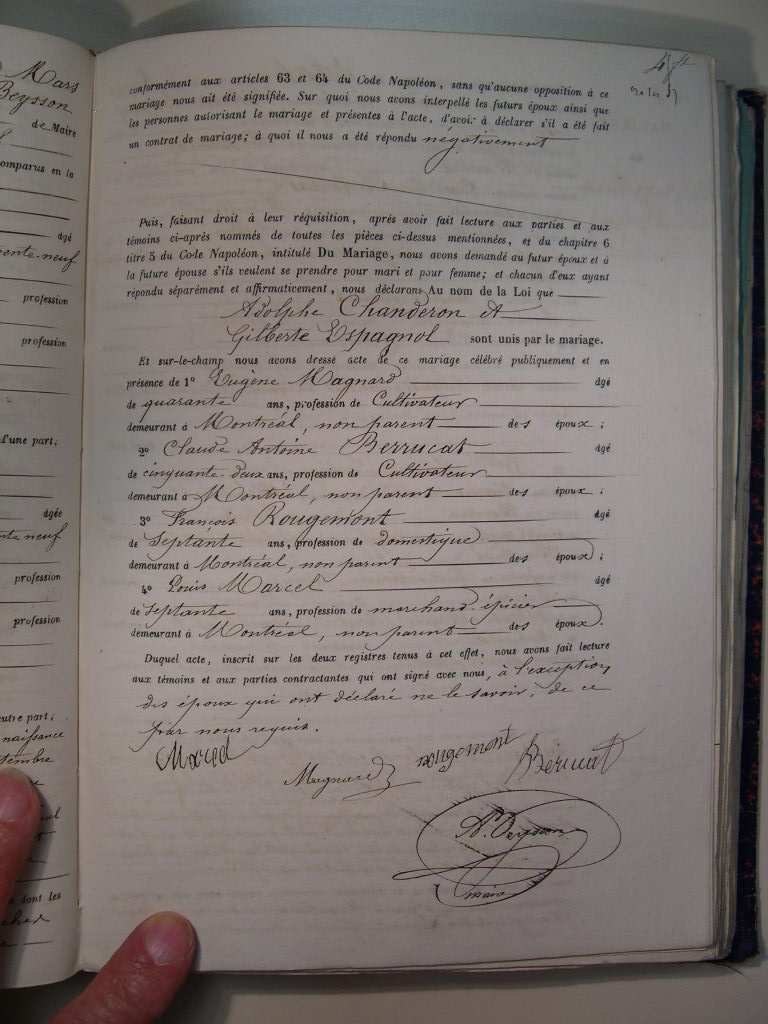 Mars
Beysson
de Maire
comparus en la
âgé
profession
profession
d'une part;
âgée
profession
profession
autre part;
naissance
conformément aux articles 63 et 64 du Code Napoléon, sans qu'aucune opposition à ce
mariage nous ait été signifiée. Sur quoi nous avons interpellé les futurs époux ainsi que
les personnes autorisant le mariage et présentes à l'acte, d'avoir à déclarer s'il a été fait
un contrat de mariage; à quoi il nous a été répondu négativement
Puis, faisant droit à leur réquisition, après avoir fait lecture aux parties et aux
témoins ci-après nommés de toutes les pièces ci-dessus mentionnées, et du chapitre 6
titre 5 du Code Napoléon, intitulé Du Mariage, nous avons demandé au futur époux et à
la future épouse s'ils veulent se prendre pour mari et pour femme; et chacun d'eux ayant
répondu séparément et affirmativement, nous déclarons Au nom de la Loi que
Adolphe Chanderon et
Gilberte Espagnol sont unis par le mariage.
Et sur-le-champ nous avons dressé acte de ce mariage célébré publiquement et en
présence de 1° Eugène Magnard âgé
de quarante ans, profession de Cultivateur
demeurant à Montréal, non parent des époux;
2° Claude Antoine Berrucat âgé
de cinquante-deux ans, profession de Cultivateur
demeurant à Montréal, non parent des époux;
3° François Rougemont âgé
de Septante ans, profession de domestique
demeurant à Montréal, non parent des époux;
4° Louis Marcel âgé
de Septante ans, profession de marchand épicier
demeurant à Montréal, non parent des époux.
Duquel acte, inscrit sur les deux registres tenus à cet effet, nous avons fait lecture
aux témoins et aux parties contractantes qui ont signé avec nous, à l'exception
des époux qui ont déclaré ne le savoir, de ce
par nous requis.
Marcel
Magnard rougemont Béricat
Beysson
maire